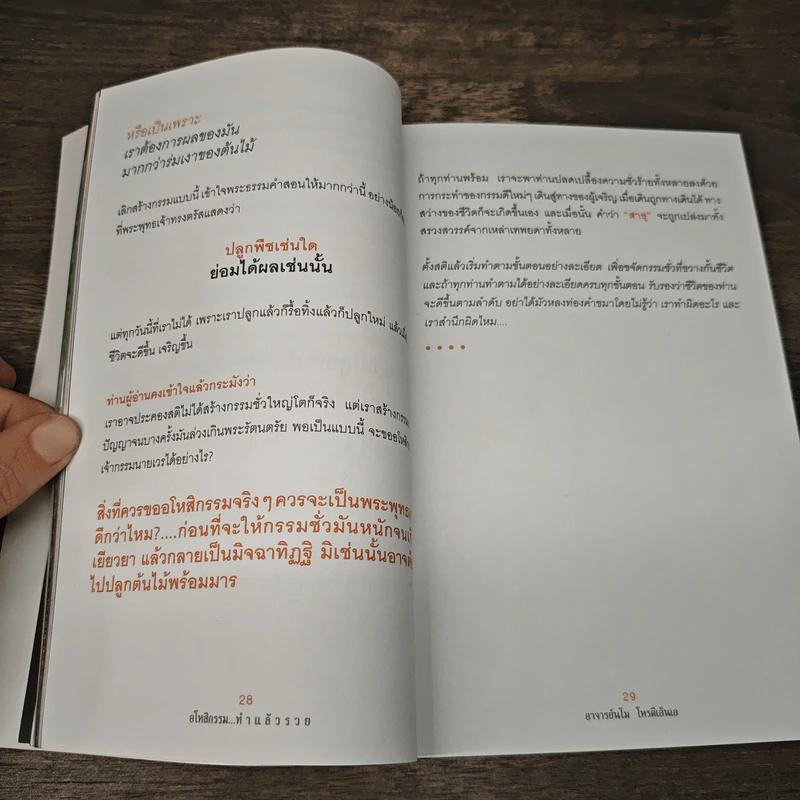 หรือเป็นเพราะ
เราต้องการผลของมัน
มากกว่าร่มเงาของต้นไม้
เลิกสร้างกรรมแบบนี้ เข้าใจพระธรรมคำสอนให้มากกว่านี้
ที่พระพุทธเจ้าทรงตรัสแสดงว่า
ปลูกพืชเช่นใด
ย่อมได้ผลเช่นนั้น
แต่ทุกวันนี้ที่เราไม่ได้ เพราะเราปลูกแล้วก็รื้อทิ้งแล้วก็ปลูกใหม่
ชีวิตจะดีขึ้น เจริญขึ้น
ท่านผู้อ่านคงเข้าใจแล้วกระมังว่า
เราอาจประคองสติไม่ได้สร้างกรรมชั่วใหญ่โตก็จริง แต่เราสร้างกรรม
ปัญญาจนบางครั้งมันล่วงเกินพระรัตนตรัย พอเป็นแบบนี้
เจ้ากรรมนายเวรได้อย่างไร?
สิ่งที่ควรขออโหสิกรรมจริงๆ ควรจะเป็น
ดีกว่าไหม?....ก่อนที่จะให้กรรมชั่วมันหนัก
เยียวยา แล้วกลายเป็นมิจฉาทิฏฐิ มิเช่นนั้นอาจ
ไปปลูกต้นไม้พร้อมมาร
28
อโหสิกรรม...ทำแล้วรวย
ถ้าทุกท่านพร้อม เราจะพาท่านปลดเปลื้องความชั่วร้ายทั้งหลายลงด้วย
การกระทำของกรรมดีใหม่ๆ เดินสู่ทางของผู้เจริญ เมื่อเดินถูกทางเดินได้ ทาง
สว่างของชีวิตก็จะเกิดขึ้นเอง และเมื่อนั้น คำว่า "สาธุ" จะถูกเปล่งมาทั้ง
สรวงสวรรค์จากเหล่าเทพยดาทั้งหลาย
ตั้งสติแล้วเริ่มทำตามขั้นตอนอย่างละเอียด เพื่อขจัดกรรมชั่วที่ขวางกั้นชีวิต
และถ้าทุกท่านทำตามได้อย่างละเอียดครบทุกขั้นตอน รับรองว่าชีวิตของท่าน
จะดีขึ้นตามลำดับ อย่าได้มัวหลงท่องคำขมาโดยไม่รู้ว่า เราทำผิดอะไร และ
เราสำนึกผิดไหม....
29
อาจารย์นโม โหรดีเอ็นเอ